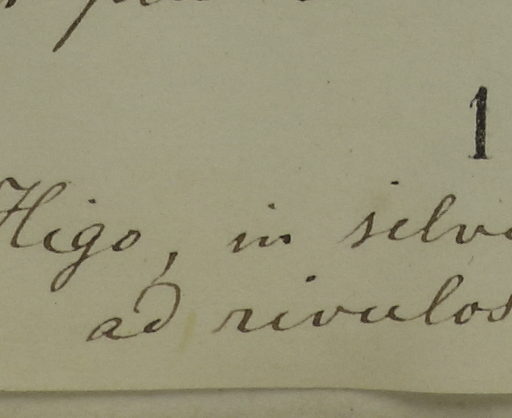 1
Higo, in silv
ad rivulos